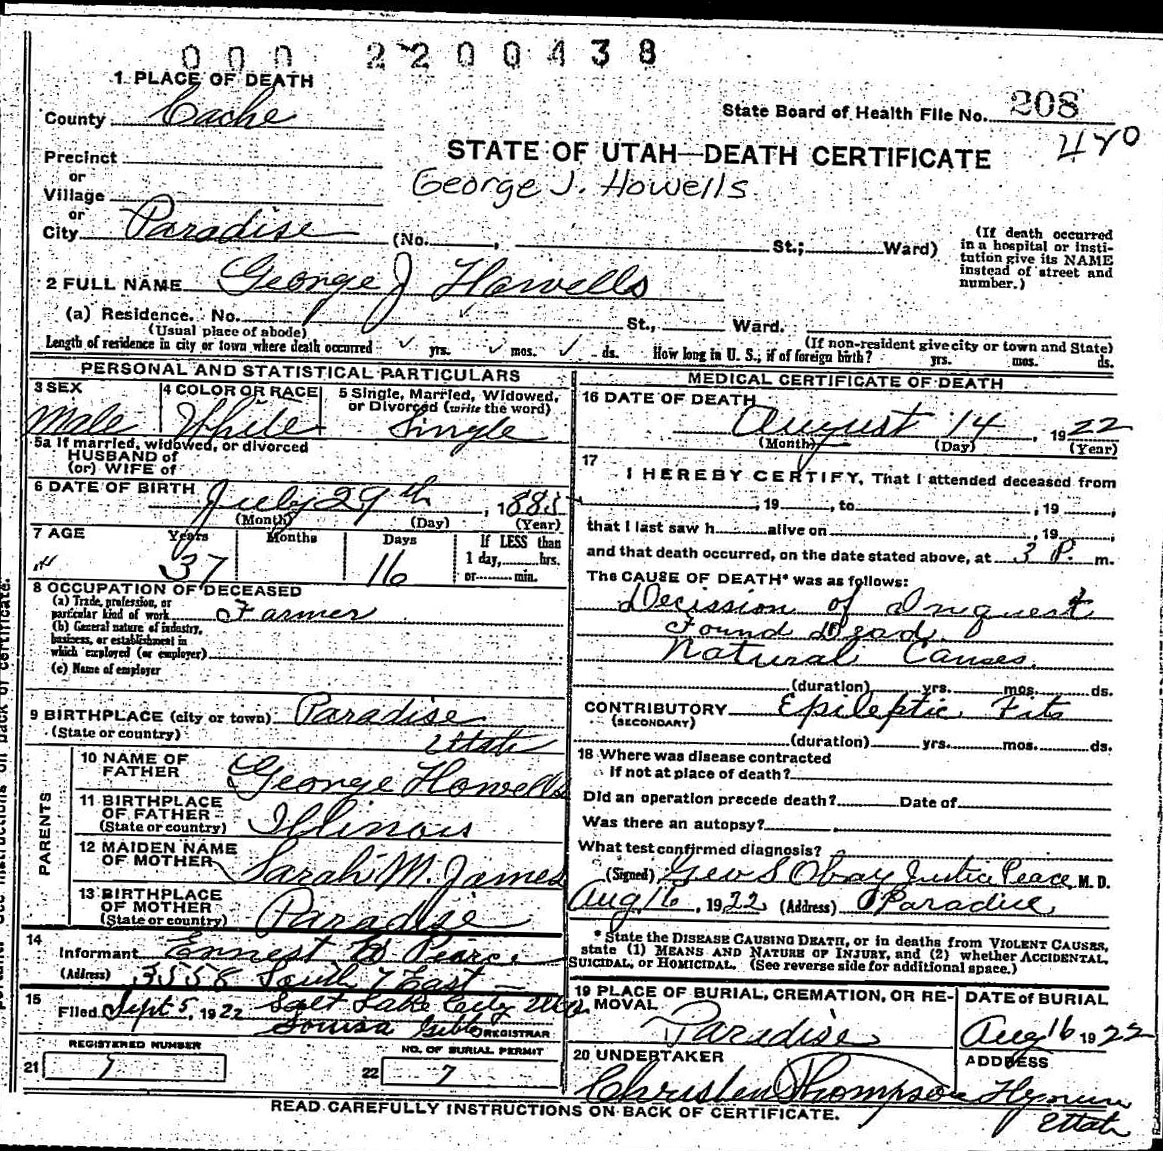 000 2200438
1 PLACE OF DEATH
County Cache
State Board of Health File No. 208
470
Precinct
or
Village
or
City Paradise
STATE OF UTAH—DEATH CERTIFICATE
George J. Howells
(No. , St.; Ward)
(If death occurred in a hospital or insti-
tution give its NAME
instead of street and
number.)
2 FULL NAME George J Howells
(a) Residence. No. St., Ward.
(Usual place of abode)
(If non-resident give city or town and State)
Length of residence in city or town where death occurred ✓ yrs. ✓ mos. ✓ ds. How long in U. S., if of foreign birth? yrs. mos. ds.
PERSONAL AND STATISTICAL PARTICULARS
3 SEX
Male
4 COLOR OR RACE
White
5 Single, Married, Widowed,
or Divorced (write the word)
Single
5a If married, widowed, or divorced
HUSBAND of
(or) WIFE of
6 DATE OF BIRTH July 29th, 1885
(Month) (Day) (Year)
7 AGE Years Months Days If LESS than
1 day, hrs.
or min.
37 16
8 OCCUPATION OF DECEASED
(a) Trade, profession, or
particular kind of work Farmer
(b) General nature of industry,
business, or establishment in
which employed (or employer)
(c) Name of employer
9 BIRTHPLACE (city or town) Paradise
(State or country) Utah
PARENTS
10 NAME OF
FATHER George Howells
11 BIRTHPLACE
OF FATHER
(State or country) Illinois
12 MAIDEN NAME
OF MOTHER Sarah M. James
13 BIRTHPLACE
OF MOTHER
(State or country) Paradise
14
Informant Ernest D Pearce
(Address) 3558 South 7 East
Salt Lake City Utah
15
Filed Sept 5, 1922 Louisa Gibbs REGISTRAR
REGISTERED NUMBER
21 7
NO. OF BURIAL PERMIT
22 7
MEDICAL CERTIFICATE OF DEATH
16 DATE OF DEATH
August 14, 1922
(Month) (Day) (Year)
17
I HEREBY CERTIFY, That I attended deceased from
, 19 , to , 19 ,
that I last saw h alive on , 19 ,
and that death occurred, on the date stated above, at 3 P. m.
The CAUSE OF DEATH* was as follows:
Decission of Inquest
Found Dead
Natural Causes.
(duration) yrs. mos. ds.
CONTRIBUTORY Epileptic Fits
(SECONDARY)
(duration) yrs. mos. ds.
18 Where was disease contracted
if not at place of death?
Did an operation precede death? Date of
Was there an autopsy?
What test confirmed diagnosis?
(Signed) Geo S Obray Justice Peace M. D.
Aug 16, 1922 (Address) Paradise
* State the DISEASE CAUSING DEATH, or in deaths from VIOLENT CAUSES,
state (1) MEANS AND NATURE OF INJURY, and (2) whether ACCIDENTAL,
SUICIDAL, or HOMICIDAL. (See reverse side for additional space.)
19 PLACE OF BURIAL, CREMATION, OR RE-
MOVAL
Paradise
DATE OF BURIAL
Aug 16 1922
20 UNDERTAKER
Christen Thompson
ADDRESS
Hyrum
Utah
READ CAREFULLY INSTRUCTIONS ON BACK OF CERTIFICATE.